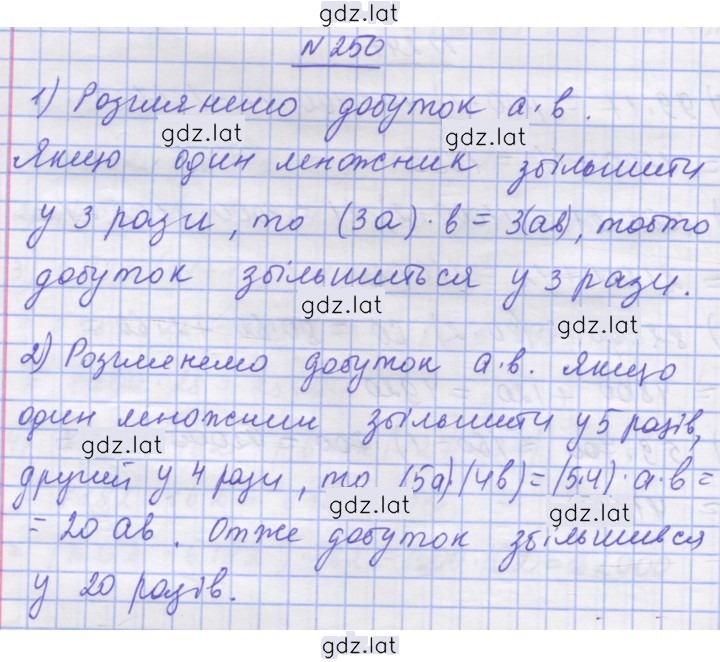 gdz.lat
N 250
1) Розглянемо добуток a·b.
gdz.lat gdz.lat
Якщо один множник збільшити
у 3 рази, то (3a)·b = 3(ab), тобто
добуток збільшиться у 3 рази.
gdz.lat gdz.lat
2) Розглянемо добуток a·b. Якщо
один множник збільшити у 5 разів,
gdz.lat gdz.lat
другий у 4 рази, то (5a)·(4b) = (5·4)·a·b =
gdz.lat gdz.lat
= 20 ab. Отже добуток збільшився
у 20 разів.
gdz.lat